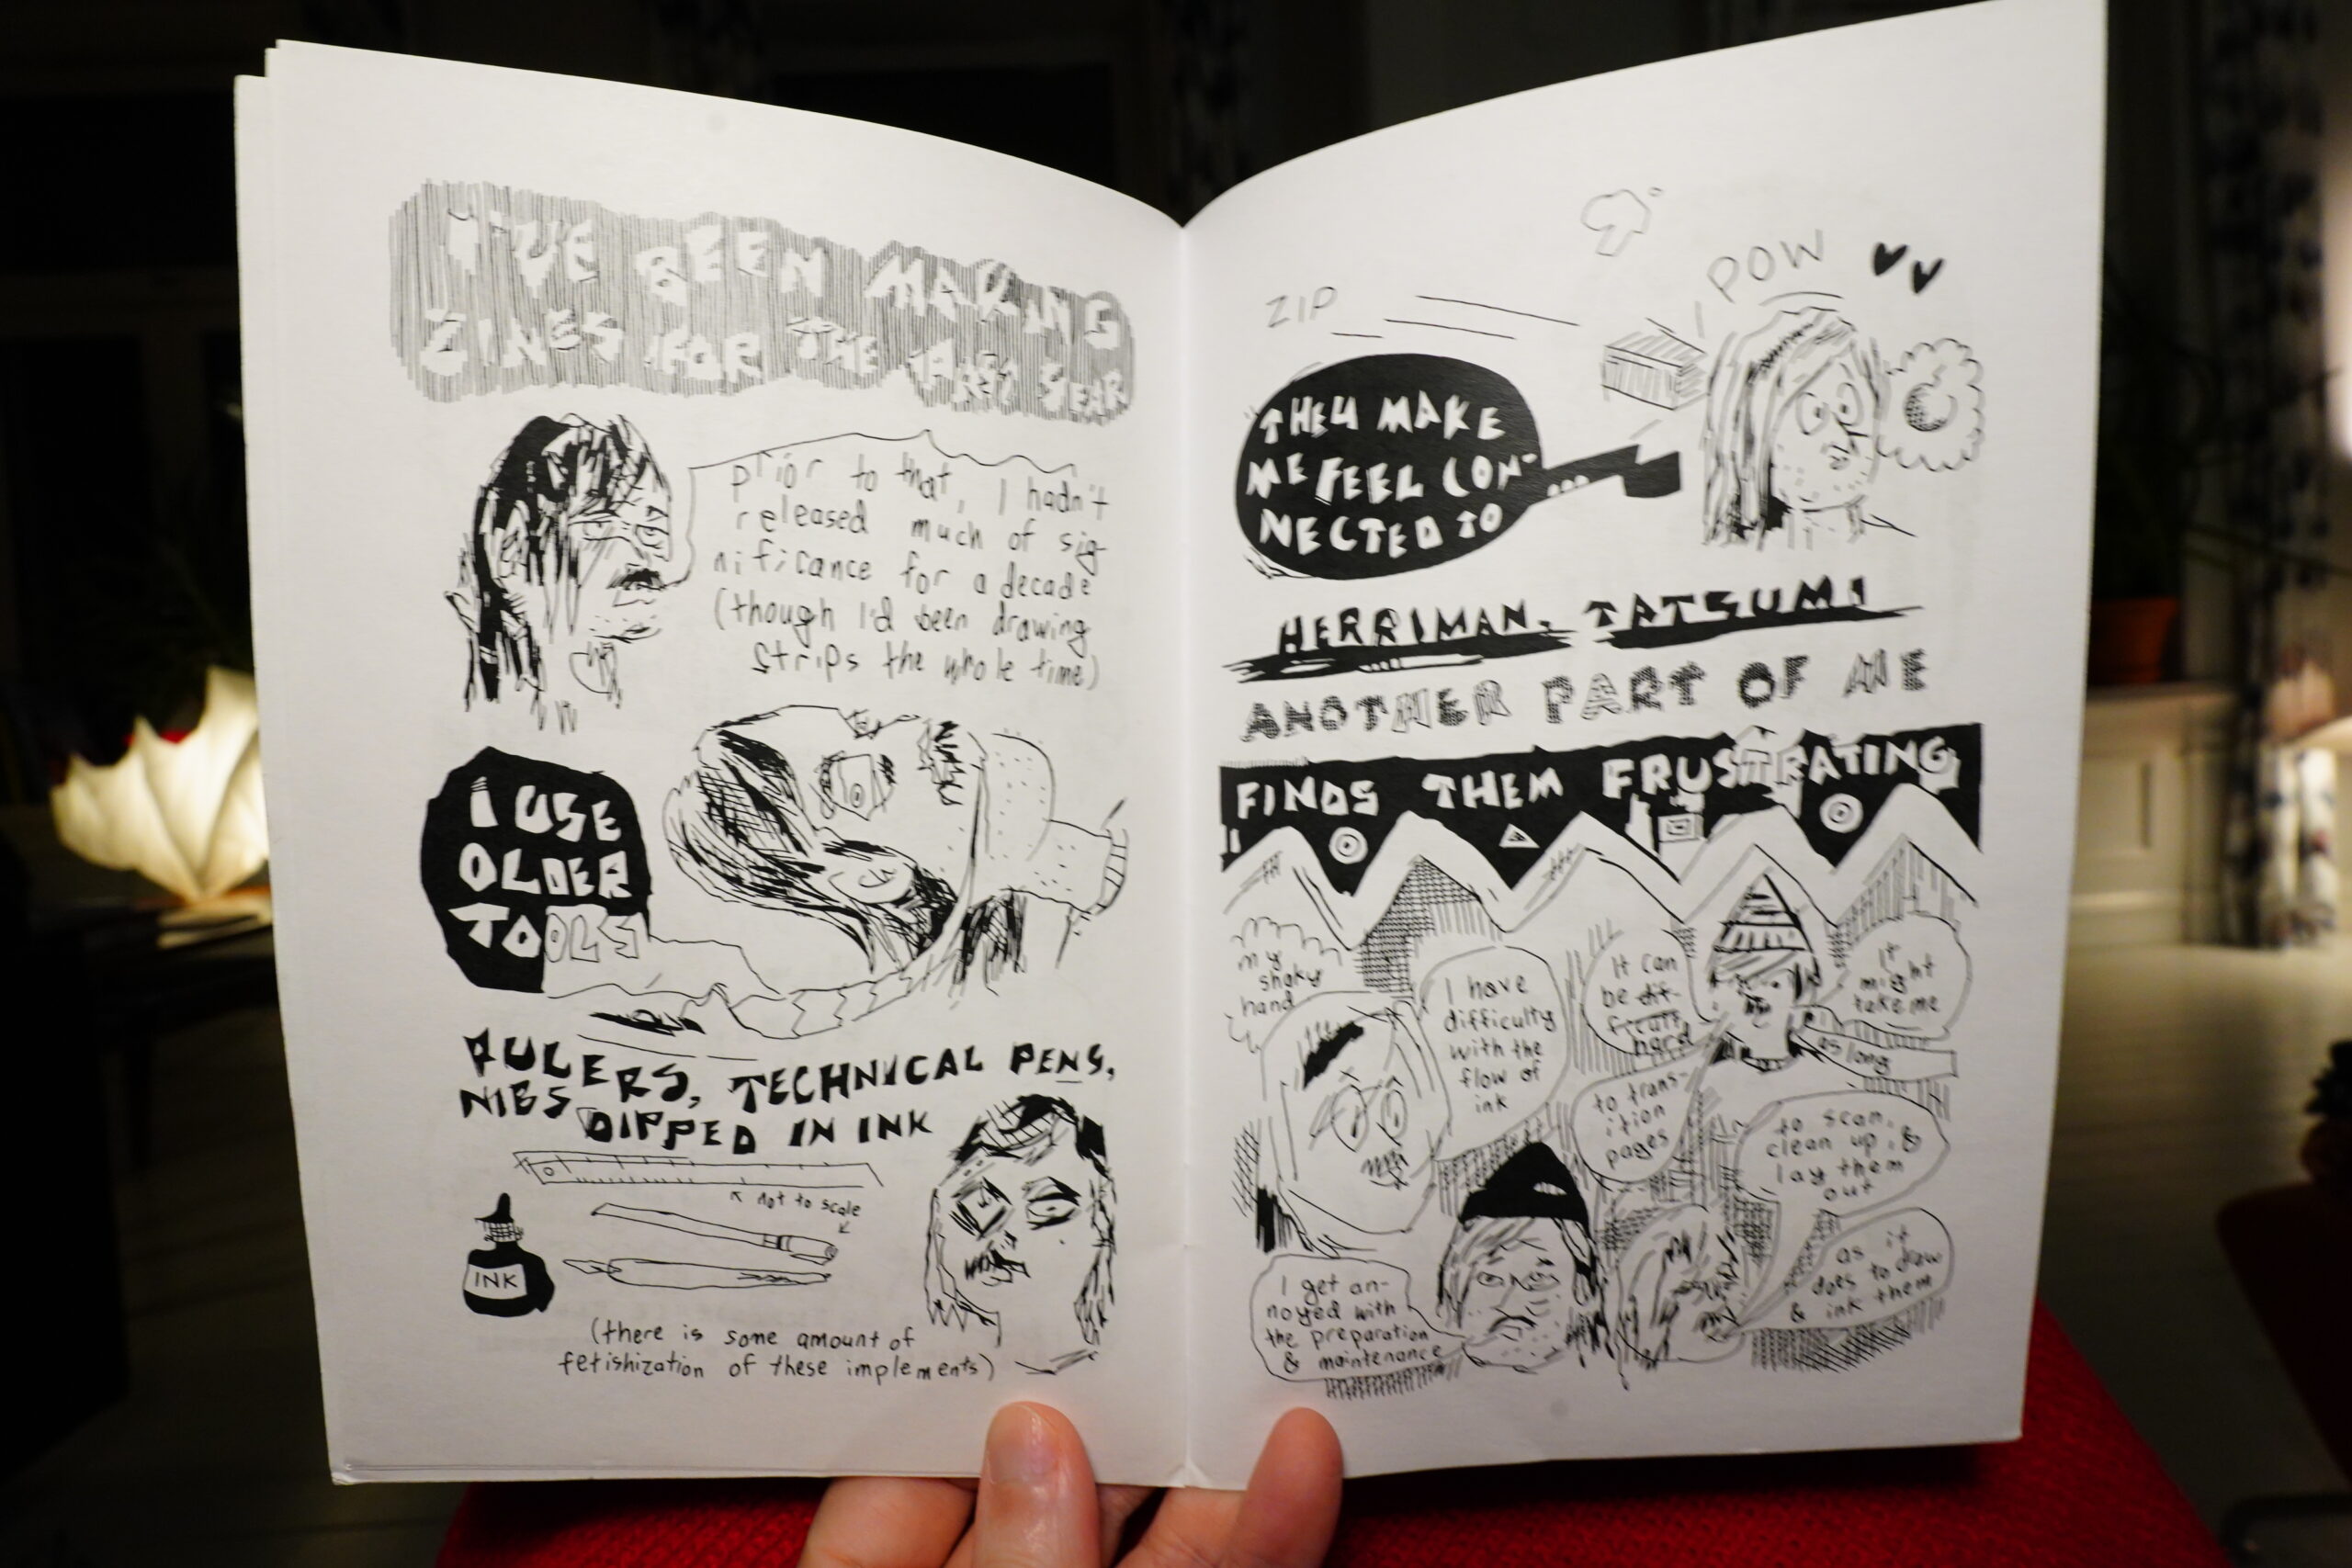 I'VE BEEN MAKING
ZINES FOR THE PAST YEAR
prior to that, I hadn't
released much of sig-
nificance for a decade
(though I'd been drawing
strips the whole time)
I USE
OLDER
TOOLS
RULERS, TECHNICAL PENS,
NIBS DIPPED IN INK
not to scale
INK
(there is some amount of
fetishization of these implements)
ZIP
POW
THEY MAKE
ME FEEL CON-
NECTED TO
HERRIMAN, TATSUMI
ANOTHER PART OF ME
FINDS THEM FRUSTRATING
my
shaky
hand
I have
difficulty
with the
flow of
ink
It can
be dif-
ficult
hard
to trans-
ition
pages
It
might
take me
as long
to scan,
clean up, &
lay them
out
as it
does to draw
& ink them
I get an-
noyed with
the preparation
& maintenance